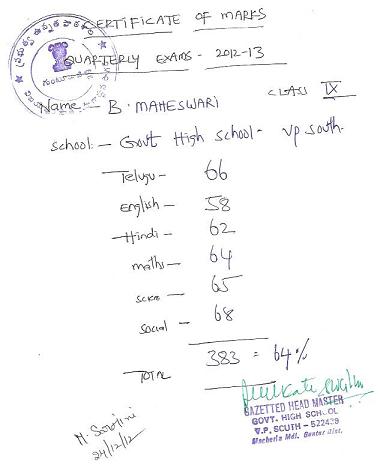 CERTIFICATE OF MARKS
QUARTERLY EXAMS - 2012-13
Name - B. MAHESWARI
CLASS IX
School:- Govt High School - VP South.
Telugu - 66
English - 58
Hindi - 62
maths - 64
65
social - 68
TOTAL 383 = 64%
M. Sarojini
24/12/12
GAZETTED HEAD MASTER
GOVT. HIGH SCHOOL
V.P. SOUTH - 522429
Macherla Mdl. Guntur Dist.